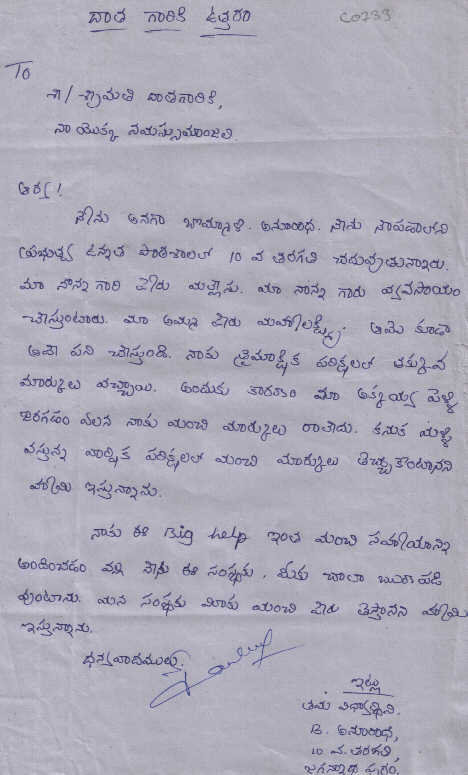 దాత గారికి ఉత్తరం
C0733
To
శ్రీ/శ్రీమతి దాతగారికి,
నా యొక్క నమస్సుమాంజలి.
ఆర్య!
నేను అనగా బొమ్మాళి. అనూరాధ. నేను నాపడాలోని
ప్రభుత్వ ఉన్నత పాఠశాలలో 10 వ తరగతి చదువుతున్నాను.
మా నాన్న గారి పేరు మల్లేసు. మా నాన్న గారు వ్యవసాయం
చేస్తుంటారు. మా అమ్మ పేరు మహాలక్ష్మి. ఆమె కూడా
అదే పని చేస్తుంది. నాకు త్రైమాక్షిక పరిక్షలలో తక్కువ
మార్కులు వచ్చాయి. అందుకు కారణం మా అక్కయ్య పెళ్ళి
జరగడం వలన నాకు మంచి మార్కులు రాలేదు. కనుక మళ్ళీ
వస్తున్న వార్షిక పరిక్షలలో మంచి మార్కులు తెచ్చుకొంటానని
హామి ఇస్తున్నాను.
నాకు ఈ Big help ఇంత మంచి సహాయాన్ని
అందించడం వల్ల నేను ఈ సంస్థకు, మీకు చాలా ఋణపడి
వుంటాను. మన సంస్థకు మీకు మంచి పేరు తెస్తానని హామి
ఇస్తున్నాను.
ధన్యవాదములు.
ఇట్లు
తమ విధ్యార్థిని.
B. అనూరాధ,
10 వ. తరగతి,
జగన్నాధ పురం.